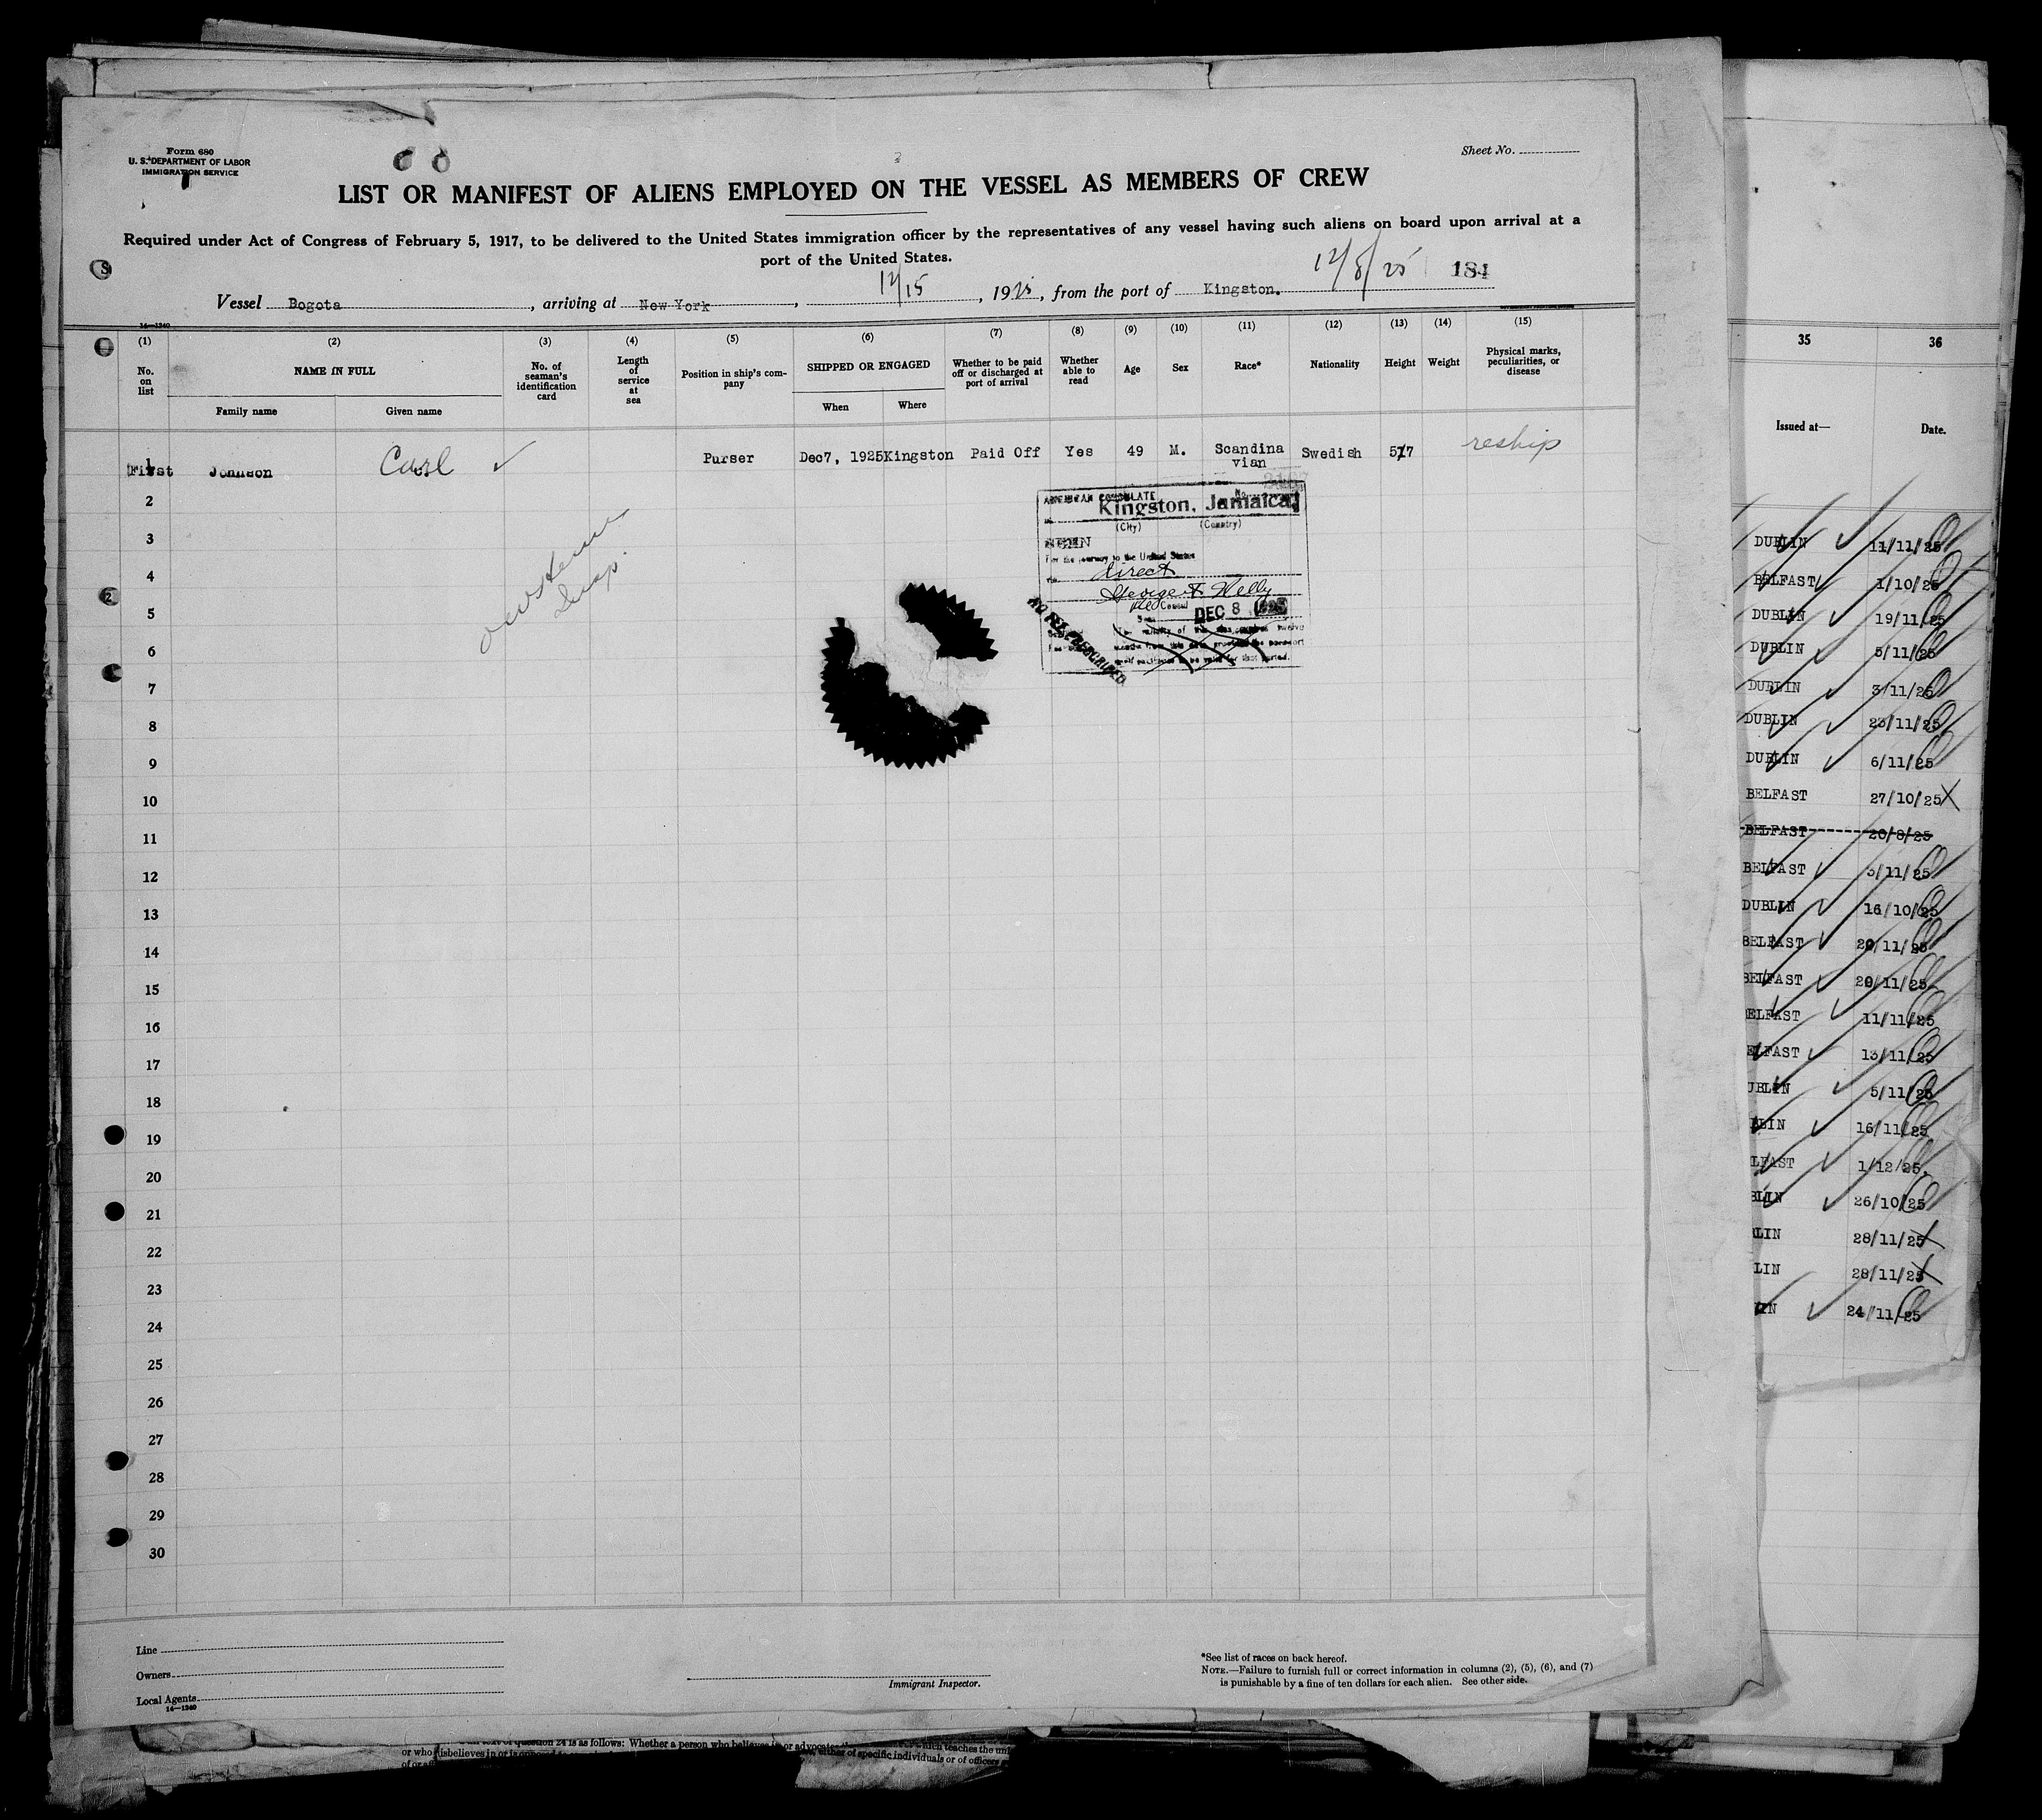 Form 680
U. S. DEPARTMENT OF LABOR
IMMIGRATION SERVICE
Sheet No.
LIST OR MANIFEST OF ALIENS EMPLOYED ON THE VESSEL AS MEMBERS OF CREW
Required under Act of Congress of February 5, 1917, to be delivered to the United States immigration officer by the representatives of any vessel having such aliens on board upon arrival at a
port of the United States.
12/8/25 184
Vessel Bogota, arriving at New York, 12/15, 1925, from the port of Kingston.
14—1240
(1) (2) (3) (4) (5) (6) (7) (8) (9) (10) (11) (12) (13) (14) (15)
No. on list
NAME IN FULL
Family name
Given name
No. of seaman's identification card
Length of service at sea
Position in ship's company
SHIPPED OR ENGAGED
When
Where
Whether to be paid off or discharged at port of arrival
Whether able to read
Age
Sex
Race*
Nationality
Height
Weight
Physical marks, peculiarities, or disease
1 First Johnson Carl ✓ Purser Dec7, 1925 Kingston Paid Off Yes 49 M. Scandinavian Swedish 5/7 reship
2
3
4
5
6
7
8
9
10
11
12
13
14
15
16
17
18
19
20
21
22
23
24
25
26
27
28
29
30
AMERICAN CONSULATE
No.
at Kingston, Jamaica
(City) (Country)
SEEN
For the journey to the United States
via direct
George F. Kelly
Consul
DEC 8 1925
NO FEE PRESCRIBED
Line
Owners
Local Agents
14—1240
Immigrant Inspector.
*See list of races on back hereof.
NOTE.—Failure to furnish full or correct information in columns (2), (5), (6), and (7)
is punishable by a fine of ten dollars for each alien. See other side.
35 36
Issued at— Date.
DUBLIN 11/11/25
BELFAST 1/10/25
DUBLIN 19/11/25
DUBLIN 5/11/25
DUBLIN 3/11/25
DUBLIN 23/11/25
DUBLIN 6/11/25
BELFAST 27/10/25
BELFAST 20/8/25
BELFAST 3/11/25
DUBLIN 16/10/25
BELFAST 20/11/25
BELFAST 20/11/25
ELFAST 11/11/25
ELFAST 13/11/25
UBLIN 5/11/25
BLIN 16/11/25
LFAST 1/12/25.
BLIN 26/10/25
LIN 28/11/25
LIN 28/11/25
IN 24/11/25
question 24 is as follows: Whether a person who believes in or advocates
or who disbelieves in or is opposed
either of specific individuals or of officers